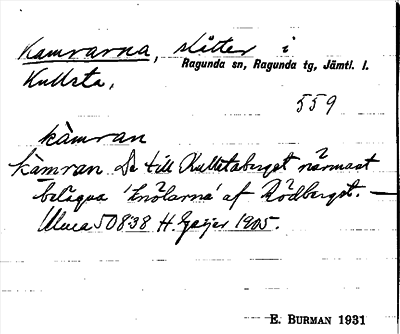 Kamrarna, slåtter i
Ragunda sn, Ragunda tg, Jämtl. l.
Kullsta.
559
kàmran
kàmran De till Kullstaberget närmast
belägna 'knölarna' af Rödberget. —
50838 H. Geijer 1905.
E. BURMAN 1931